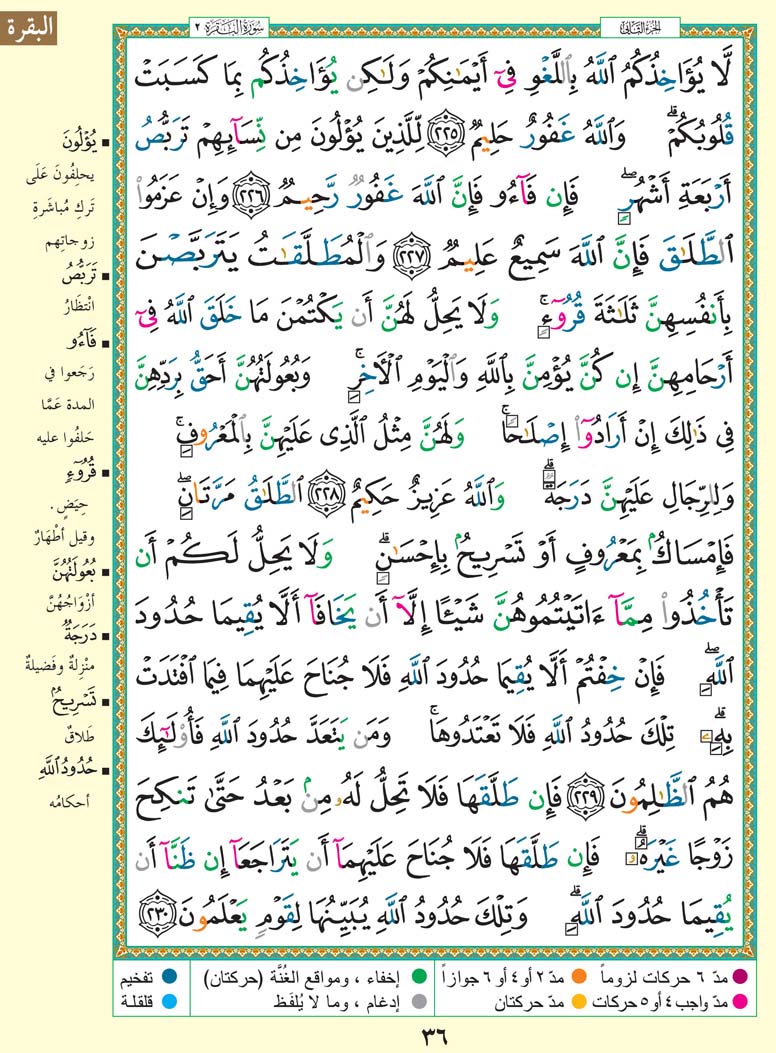 البقرة
سُورَةُ البَقَرَة ٢
الجزء الثاني
لَّا يُؤَاخِذُكُمُ ٱللَّهُ بِٱللَّغْوِ فِىٓ أَيْمَـٰنِكُمْ وَلَـٰكِن يُؤَاخِذُكُم بِمَا كَسَبَتْ
قُلُوبُكُمْ ۗ وَٱللَّهُ غَفُورٌ حَلِيمٌ ٢٢٥ لِّلَّذِينَ يُؤْلُونَ مِن نِّسَآئِهِمْ تَرَبُّصُ
أَرْبَعَةِ أَشْهُرٍ ۖ فَإِن فَآءُو فَإِنَّ ٱللَّهَ غَفُورٌ رَّحِيمٌ ٢٢٦ وَإِنْ عَزَمُوا۟
ٱلطَّلَـٰقَ فَإِنَّ ٱللَّهَ سَمِيعٌ عَلِيمٌ ٢٢٧ وَٱلْمُطَلَّقَـٰتُ يَتَرَبَّصْنَ
بِأَنفُسِهِنَّ ثَلَـٰثَةَ قُرُوٓءٍ ۚ وَلَا يَحِلُّ لَهُنَّ أَن يَكْتُمْنَ مَا خَلَقَ ٱللَّهُ فِىٓ
أَرْحَامِهِنَّ إِن كُنَّ يُؤْمِنَّ بِٱللَّهِ وَٱلْيَوْمِ ٱلْـَٔاخِرِ ۚ وَبُعُولَتُهُنَّ أَحَقُّ بِرَدِّهِنَّ
فِى ذَٰلِكَ إِنْ أَرَادُوٓا۟ إِصْلَـٰحًا ۚ وَلَهُنَّ مِثْلُ ٱلَّذِى عَلَيْهِنَّ بِٱلْمَعْرُوفِ ۚ
وَلِلرِّجَالِ عَلَيْهِنَّ دَرَجَةٌ ۗ وَٱللَّهُ عَزِيزٌ حَكِيمٌ ٢٢٨ ٱلطَّلَـٰقُ مَرَّتَانِ ۖ
فَإِمْسَاكٌۢ بِمَعْرُوفٍ أَوْ تَسْرِيحٌۢ بِإِحْسَـٰنٍ ۗ وَلَا يَحِلُّ لَكُمْ أَن
تَأْخُذُوا۟ مِمَّآ ءَاتَيْتُمُوهُنَّ شَيْـًٔا إِلَّآ أَن يَخَافَآ أَلَّا يُقِيمَا حُدُودَ
ٱللَّهِ ۖ فَإِنْ خِفْتُمْ أَلَّا يُقِيمَا حُدُودَ ٱللَّهِ فَلَا جُنَاحَ عَلَيْهِمَا فِيمَا ٱفْتَدَتْ
بِهِۦ ۗ تِلْكَ حُدُودُ ٱللَّهِ فَلَا تَعْتَدُوهَا ۚ وَمَن يَتَعَدَّ حُدُودَ ٱللَّهِ فَأُو۟لَـٰٓئِكَ
هُمُ ٱلظَّـٰلِمُونَ ٢٢٩ فَإِن طَلَّقَهَا فَلَا تَحِلُّ لَهُۥ مِنۢ بَعْدُ حَتَّىٰ تَنكِحَ
زَوْجًا غَيْرَهُۥ ۗ فَإِن طَلَّقَهَا فَلَا جُنَاحَ عَلَيْهِمَآ أَن يَتَرَاجَعَآ إِن ظَنَّآ أَن
يُقِيمَا حُدُودَ ٱللَّهِ ۗ وَتِلْكَ حُدُودُ ٱللَّهِ يُبَيِّنُهَا لِقَوْمٍ يَعْلَمُونَ ٢٣٠
يُؤْلُونَ
يحلِفُونَ عَلَى
تَركِ مُباشَرةِ
زوجاتِهم
تَرَبُّصُ
انْتظارُ
فَآءُو
رَجَعوا في
المدة عَمَّا
حَلفُوا عليه
قُرُوٓءٍ
حِيَضٍ.
وقيل أطْهَارٌ
بُعُولَتُهُنَّ
أزْوَاجُهُنَّ
دَرَجَةٌ
منْزِلةٌ وفَضيلةٌ
تَسْرِيحٌ
طَلاقٌ
حُدُودُ ٱللَّهِ
أحكامُه
مدّ ٦ حركات لزوماً
مدّ ٢ أو ٤ أو ٦ جوازاً
إخفاء ، ومواقع الغُنَّة (حركتان)
تفخيم
مدّ واجب ٤ أو ٥ حركات
مدّ حركتان
إدغام ، وما لا يُلفَظ
قلقلة
٣٦